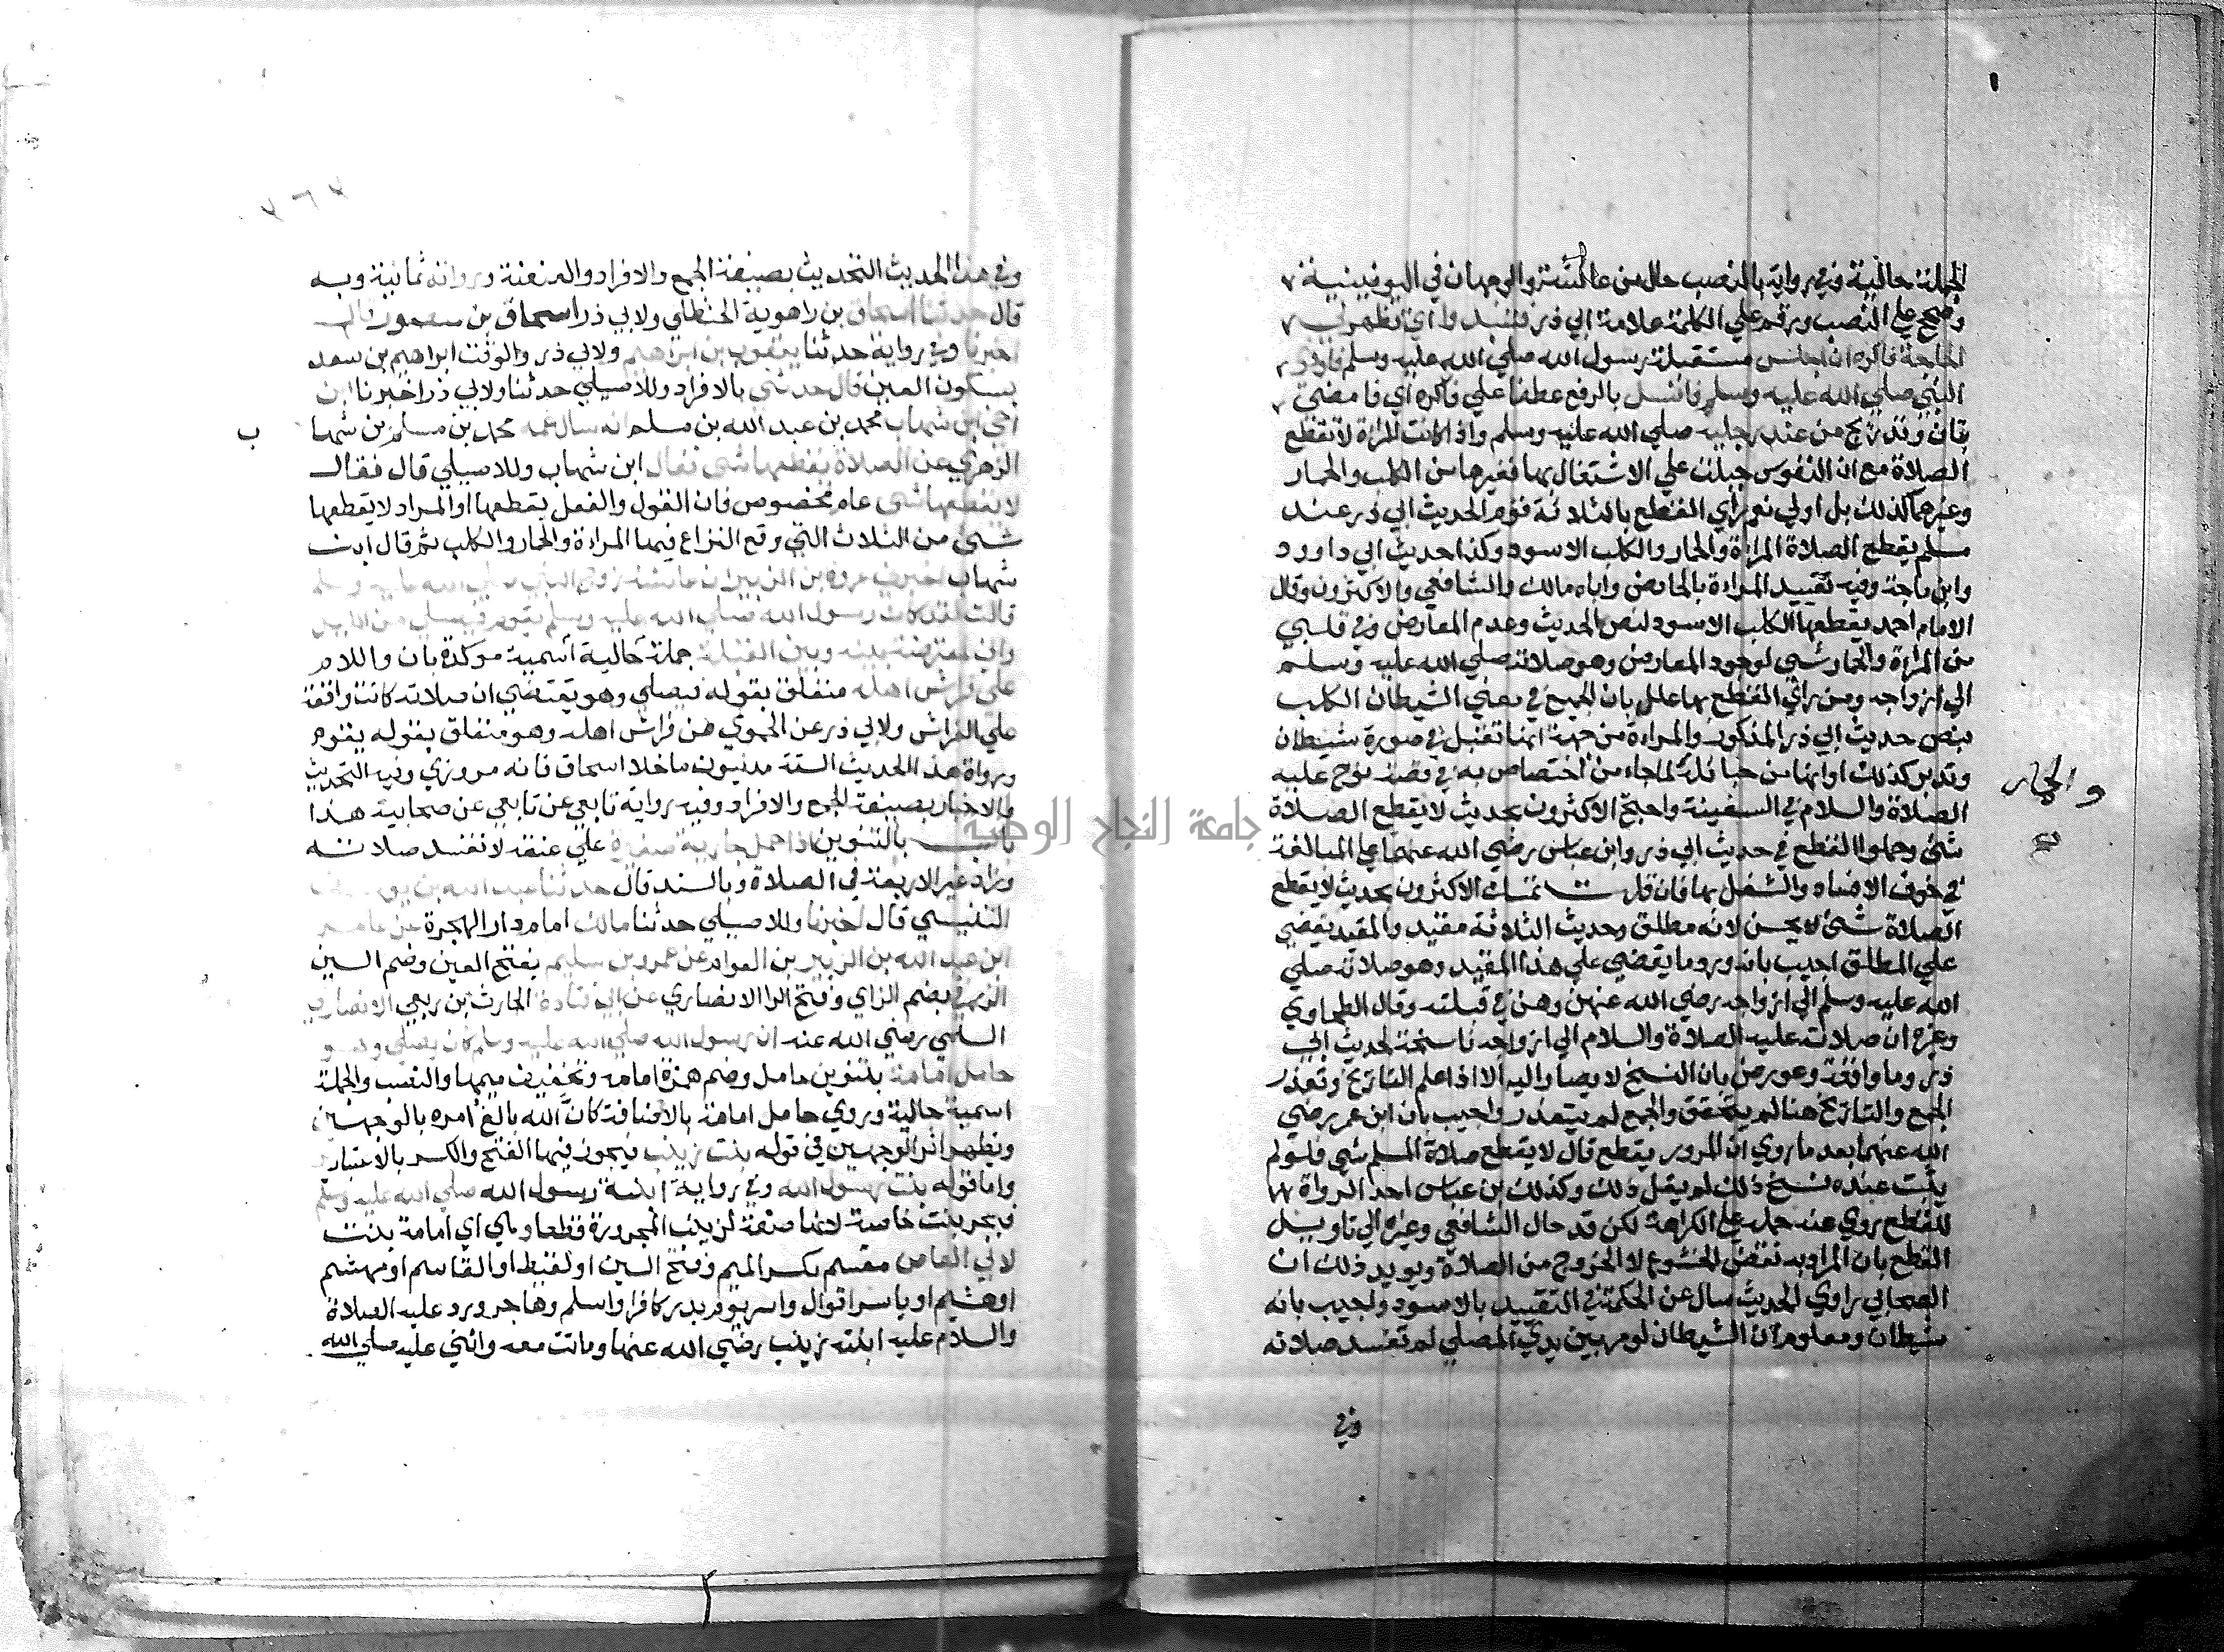 الجملة حالية وفي رواية بالنصب حال من عائشة والوجهان في اليونينية
وصحح علي النصب ورقم علي الكلمة علامة ابي ذر فتبدوا اي تظهر لي
الحاجة فاكره ان اجلس مستقبلة رسول الله صلي الله عليه وسلم فاوذي
النبي صلي الله عليه وسلم فانسل بالرفع عطفا علي فاكره اي فامضي
بتان وتدريج من عند رجليه صلي الله عليه وسلم واذا كانت المراة لا تقطع
الصلاة مع ان النفوس جبلت علي الاشتغال بها فغيرها من الكلب والحمار
وغيرهما كذلك بل اولي نعم راي القطع بالثلاثة قوم لحديث ابي ذر عند
مسلم يقطع الصلاة المراة والحمار والكلب الاسود وكذا حديث ابي داوود
وابن ماجة وفيه تقييد المراءة بالحايض واباه مالك والشافعي والاكثرون وقال
الامام احمد يقطعها الكلب الاسود لنص الحديث وعدم المعارض وفي قلبي
من المراءة والحمار شي لوجود المعارض وهو صلاته صلي الله عليه وسلم
الي ازواجه ومن راي القطع بها علل بان الجميع في معني الشيطان الكلب
بنص حديث ابي ذر المذكور والمراءة من جهة انها تقبل في صورة شيطان
وتدبر كذلك اوانها من حبائله لما جاء من اختصاص به في قصة نوح عليه
والحمار
صح
الصلاة والسلام في السفينة واحتج الاكثرون بحديث لا يقطع الصلاة
شئ وحملوا القطع في حديث ابي ذر وابن عباس رضي الله عنهما علي المبالغة
في خوف الافساد والشغل بها فان قلت تمسك الاكثرون بحديث لا يقطع
الصلاة شئ لا يحسن لانه مطلق وحديث الثلاثة مقيد والمقيد يقضي
علي المطلق اجيب بانه ورد ما يقضي علي هذا المقيد وهو صلاته صلي
الله عليه وسلم الي ازواجه رضي الله عنهن وهن في قبلته وقال الطحاوي
وغيره ان صلاته عليه الصلاة والسلام الي ازواجه ناسخة لحديث ابي
ذر وما وافقه وعورض بان النسخ لا يصار اليه الا اذا علم التاريخ وتعذر
الجمع والتاريخ هنا لم يتحقق والجمع لم يتعذر واجيب بان ابن عمر رضي
الله عنهما بعد ما روي ان المرور يقطع قال لا يقطع صلاة المسلم شي فلو لم
يثبت عنده نسخ ذلك لم يقل ذلك وكذلك بن عباس احد الرواة
للقطع روي عنه حمله علي الكراهة لكن قد حال الشافعي وغيره الي تاويل
القطع بان المراد به نقض الخشوع لا الخروج من الصلاة ويويد ذلك ان
الصحابي راوي الحديث سال عن الحكمة في التقييد بالاسود واجيب بانه
شيطان ومعلوم ان الشيطان لو مر بين يدي المصلي لم تفسد صلاته
وفي
وفي هذا الحديث التحديث بصيغة الجمع والافراد والعنعنة ورواته ثمانية وبه
قال حدثنا اسحاق بن راهوية الحنظلي ولابي ذر اسحاق بن منصور قال
اخبرنا وفي رواية حدثنا يعقوب بن ابراهيم ولابي ذر والوقت ابراهيم بن سعد
بسكون العين قال حدثني بالافراد وللاصيلي حدثنا ولابي ذر اخبرنا ابن
اخي ابن شهاب محمد بن عبد الله بن مسلم انه سال عمه محمد بن مسلم بن شها
ب
الزهري عن الصلاة يقطعها شي فقال ابن شهاب وللاصيلي قال فقال
لا يقطعها شي عام مخصوص فان القول والفعل يقطعها او المراد لا يقطعها
شئ من الثلاث التي وقع النزاع فيها المراءة والحمار والكلب ثم قال ابن
شهاب اخبرني عروة بن الزبير ان عائشة زوج النبي صلي الله عليه وسلم
قالت لقد كان رسول الله صلي الله عليه وسلم يقوم فيصلي من الليل
واني لمعترضة بينه وبين القبلة جملة حالية اسمية موكدة بان واللام
علي فراش اهله متعلق بقوله فيصلي وهو يقتضي ان صلاته كانت واقعة
علي الفراش ولابي ذر عن الحموي عن فراش اهله وهو متعلق بقوله يقوم
ورواة هذا الحديث الستة مدنيون ما خلا اسحاق فانه مروزي وفيه التحديث
والاخبار بصيغة الجمع والافراد وفيه رواية تابعي عن تابعي عن صحابية هذا
باب بالتنوين اذا حمل جارية صغيرة علي عنقه لا تفسد صلاته
وزاد غير الاربعة في الصلاة وبالسند قال حدثنا عبد الله بن يوسف
التنيسي قال اخبرنا وللاصيلي حدثنا مالك امام دار الهجرة عن عامر
ابن عبد الله بن الزبير بن العوام عن عمرو بن سليم بفتح العين وضم السين
الزرقي بضم الزاي وفتح الرا الانصاري عن ابي قتادة الحارث بن ربعي الانصاري
السلمي رضي الله عنه ان رسول الله صلي الله عليه وسلم كان يصلي وهو
حامل امامة بتنوين حامل وضم همزة امامه وتخفيف ميمها والنصب والجملة
اسمية حالية وروي حامل امامة بالاضافة كان الله بالغ امره بالوجهين
ويظهر اثر الوجهين في قوله بنت زينب فيجوز فيها الفتح والكسر بالاعتبارين
واما قوله بنت رسول الله وفي رواية ابنة رسول الله صلي الله عليه وسلم
فبجر بنت خاصة لانها صفة لزينب المجرورة قطعا وهي اي امامة بنت
لابي العاص مقسم بكسر الميم وفتح السين او لقيط او القاسم او مهشم
او هشيم او ياسر اقوال واسر يوم بدر كافرا واسلم وهاجر ورد عليه الصلاة
والسلام عليه ابنته زينب رضي الله عنها وماتت معه واثني عليه صلي الله
جامعة النجاح الوطنية